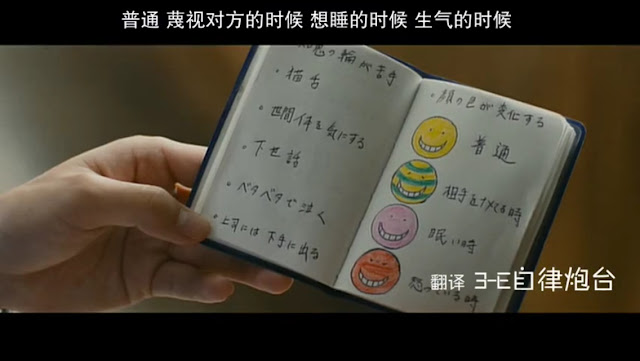 普通 蔑视对方的时候 想睡的时候 生气的时候
の輪が苦手
・猫舌
・世間体を気にする
・下世話
・ベタベタで泣く
・上司には下手に出る
・顔の色が変化する
普通
相手をナメてる時
眠い時
る時
翻译 3-E自律炮台